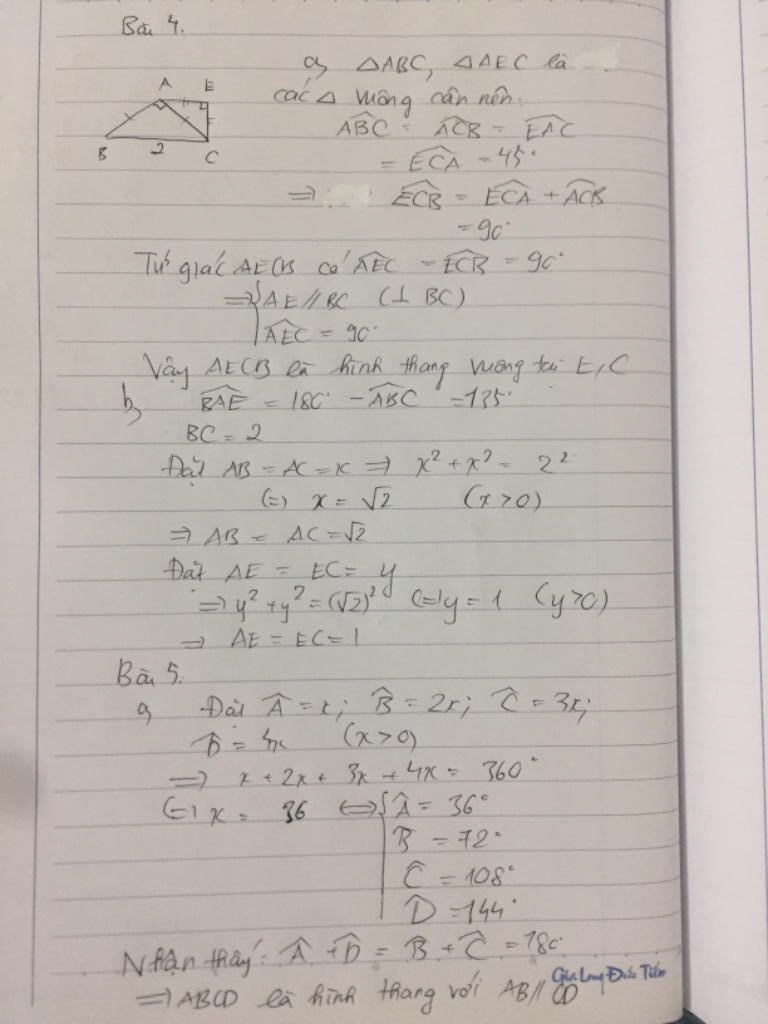 Bài 4.
A E
B 2 C
a, △ABC, △AEC là
các △ vuông cân nên:
ABC = ACB = EAC
= ECA = 45°
=> ECB = ECA + ACB
= 90°
Tứ giác AECB có AEC = ECB = 90°
=> { AE // BC (⊥ BC)
AEC = 90°
Vậy AECB là hình thang vuông tại E, C
b, BAE = 180° - ABC = 135°
BC = 2
Đặt AB = AC = x => x² + x² = 2²
(=) x = √2 (x > 0)
=> AB = AC = √2
Đặt AE = EC = y
=> y² + y² = (√2)² (=) y = 1 (y > 0)
=> AE = EC = 1
Bài 5.
a, Đặt A = x; B = 2x; C = 3x;
D = 4x (x > 0)
=> x + 2x + 3x + 4x = 360°
(=) x = 36 <=> { A = 36°
B = 72°
C = 108°
D = 144°
Nhận thấy: A + D = B + C = 180°
=> ABCD là hình thang với AB // CD
Gia Long Đức Tiến